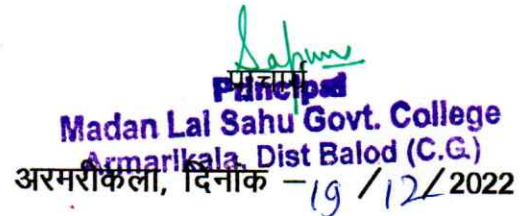 प्राचार्य
Principal
Madan Lal Sahu Govt. College
Armarikala, Dist Balod (C.G.)
अरमरीकला, दिनांक – 19 / 12 / 2022